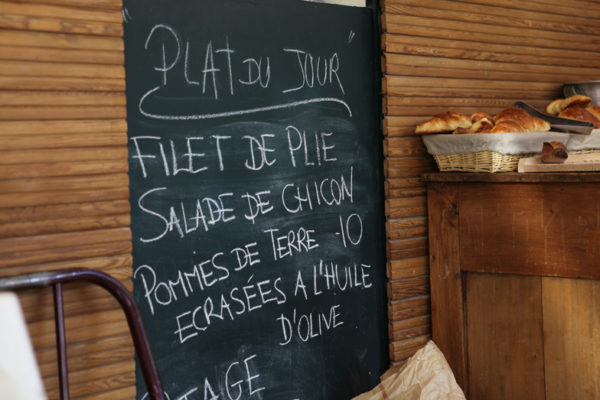 "PLAT DU JOUR"
FILET DE PLIE
SALADE DE CHICON
POMMES DE TERRE -10
ECRASÉES A L'HUILE
D'OLIVE